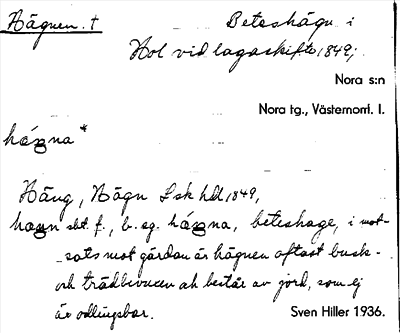 Hägnen. †
Beteshägn i
Hol vid lagaskifte 1849;
Nora s:n
Nora tg., Västernorrl. l.
hágna*
Häng, Hägn Lsk hdl 1849,
sbt f., b. sg. hágna, beteshage, i mot-
sats mot gärdan är hägnen oftast busk-
och trädbevuxen ock består av jord, som ej
är odlingsbar.
Sven Hiller 1936.